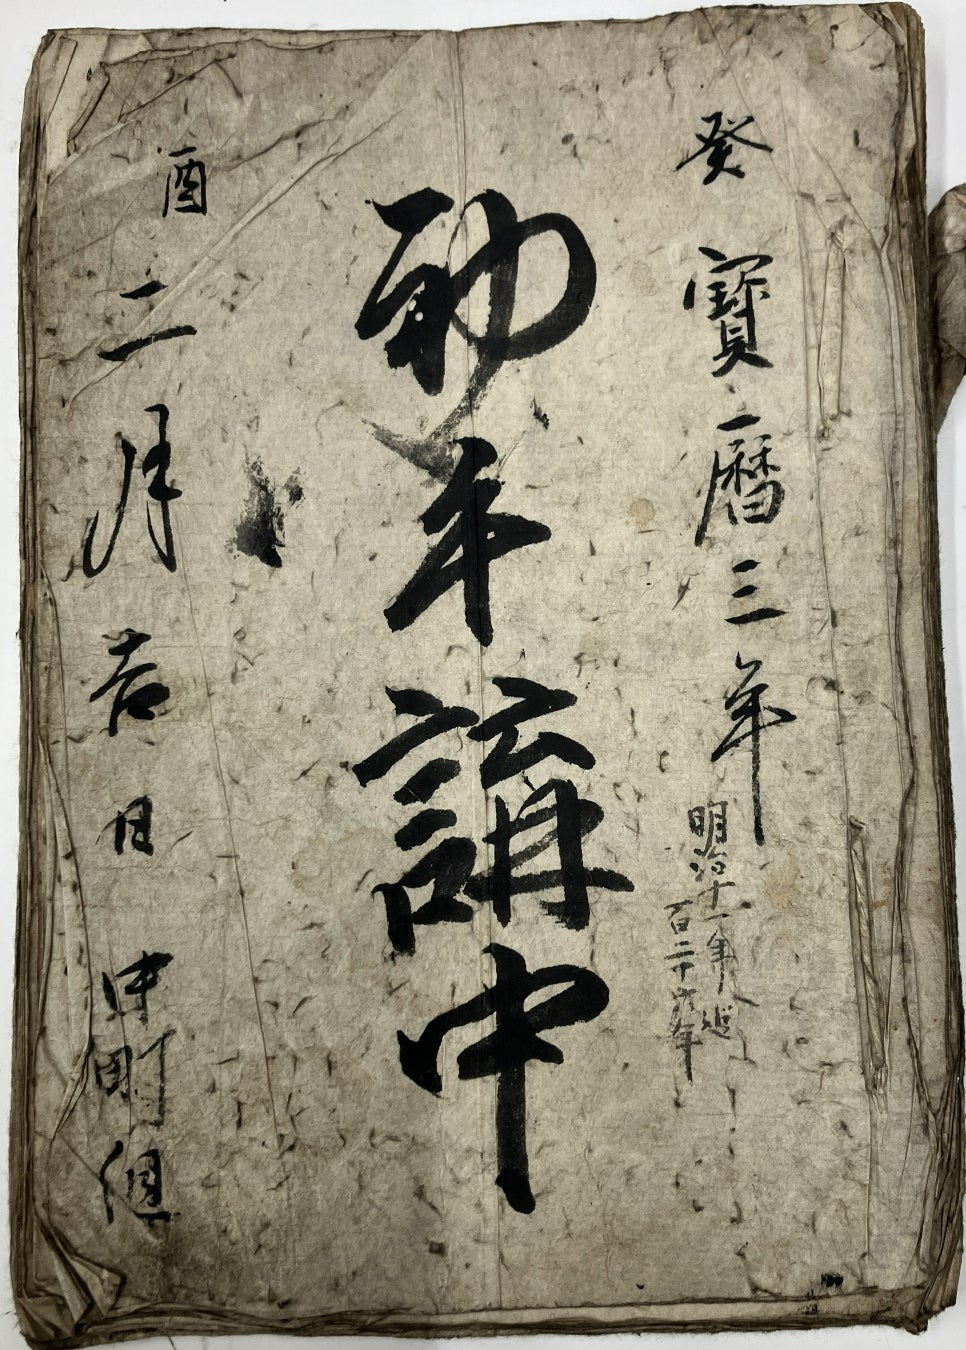 癸
寶暦三年
明治十一年迄
百二十六年
初午講中
酉
二月吉日
中町組